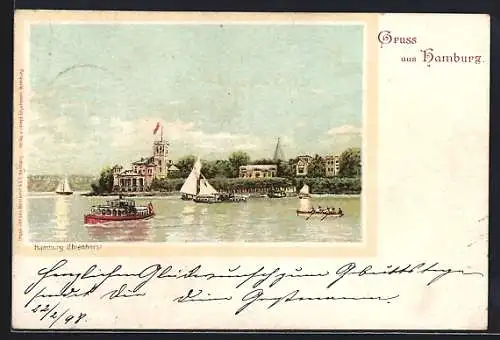 Gruss
aus Hamburg.
Hamburg Uhlenhorst
Herzlichen Glückwunsch zum Geburtstage
sendet Dir Dein
22/2/98.